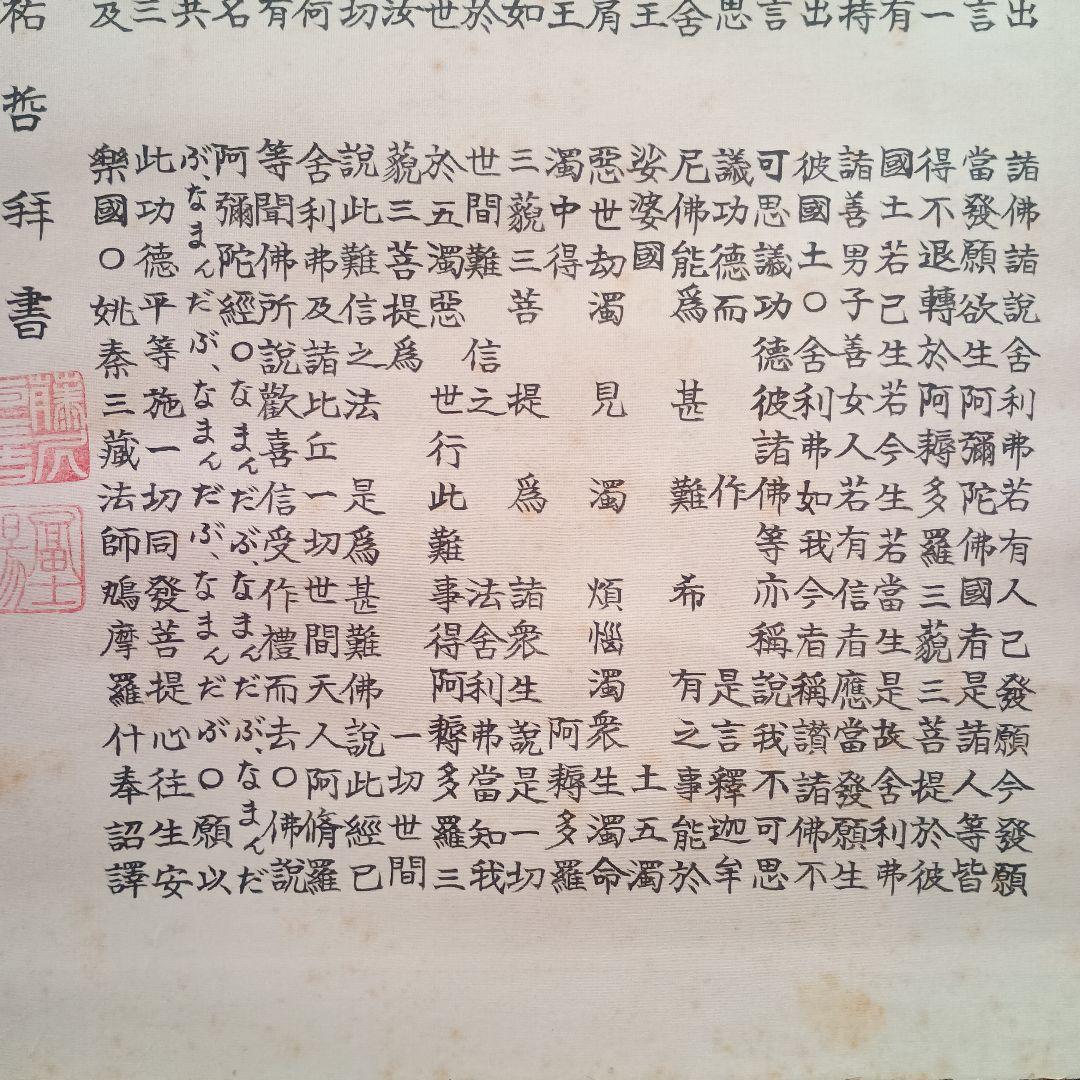 出言一有持出言思舍王肩王如於世汝切何有名共三及
諸佛諸說舍利弗若有人已發願今發願
當發願欲生阿彌陀佛國者是諸人等皆
得不退轉於阿耨多羅三藐三菩提於彼
國土若已生若今生若當生是故舍利弗
諸善男子善女人若有信者應當發願生
彼國土〇舍利弗如我今者稱讃諸佛不
可思議功德彼諸佛等亦稱說我不可思
議功德而作是言釋迦牟
尼佛能爲甚難希有之事能於
娑婆國土五濁
惡世劫濁見濁煩惱濁衆生濁命
濁中得阿耨多羅
三藐三菩提爲諸衆生說是一切
世間難信之法舍利弗當知我
於五濁惡世行此難事得阿耨多羅三
藐三菩提爲一切世間
說此難信之法是爲甚難佛說此經已
舍利弗及諸比丘一切世間天人阿脩羅
等聞佛所說歡喜信受作禮而去〇佛說
阿彌陀經〇なまんだぶ、なまんだぶ、なまんだ
ぶ、なまんだぶ、なまんだぶ、なまんだぶ〇願以
此功德平等施一切同發菩提心往生安
樂國〇姚秦三藏法師鳩摩羅什奉詔譯
祐哲拜書